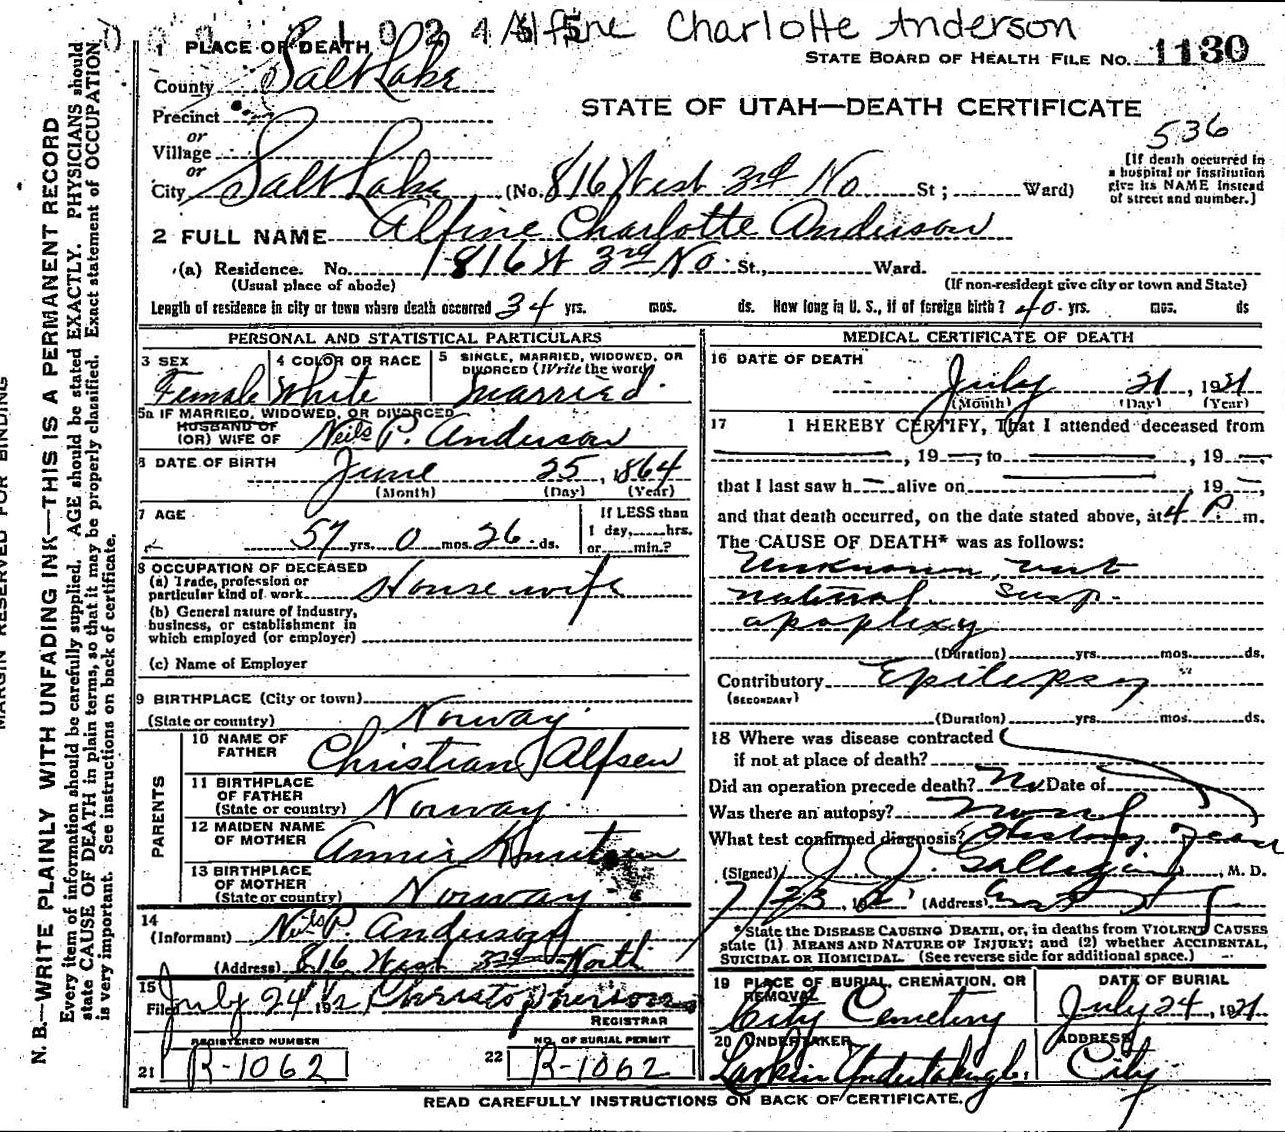 Alfine Charlotte Anderson
1 PLACE OF DEATH
STATE BOARD OF HEALTH FILE No. 1130
County Salt Lake
STATE OF UTAH—DEATH CERTIFICATE
Precinct
536
or
Village
or
City Salt Lake (No. 816 West 3rd No St; Ward)
[If death occurred in
a hospital or institution
give its NAME instead
of street and number.]
2 FULL NAME Alfine Charlotte Anderson
(a) Residence. No. 816 W 3rd No. St., Ward.
(Usual place of abode) (If non-resident give city or town and State)
Length of residence in city or town where death occurred 34 yrs. mos. ds. How long in U. S., if of foreign birth? 40 yrs. mos. ds
PERSONAL AND STATISTICAL PARTICULARS
3 SEX 4 COLOR OR RACE 5 SINGLE, MARRIED, WIDOWED, OR
DIVORCED (Write the word)
Female White Married
5a IF MARRIED, WIDOWED, OR DIVORCED
HUSBAND OF
(OR) WIFE OF Neils P. Anderson
6 DATE OF BIRTH June 25, 1864
(Month) (Day) (Year)
7 AGE If LESS than
57 yrs. 0 mos. 26 ds. 1 day, hrs.
or min.?
8 OCCUPATION OF DECEASED
(a) Trade, profession or
particular kind of work House wife
(b) General nature of industry,
business, or establishment in
which employed (or employer)
(c) Name of Employer
9 BIRTHPLACE (City or town)
(State or country) Norway.
PARENTS
10 NAME OF
FATHER Christian Alfsen
11 BIRTHPLACE
OF FATHER
(State or country) Norway.
12 MAIDEN NAME
OF MOTHER Annie
13 BIRTHPLACE
OF MOTHER
(State or country) Norway
14
(Informant) Neils P. Anderson
(Address) 816 West 3rd North
15
Filed July 24 192
REGISTRAR
REGISTERED NUMBER
21 R-1062
NO. OF BURIAL PERMIT
22 R-1062
MEDICAL CERTIFICATE OF DEATH
16 DATE OF DEATH
July 21, 1921
(Month) (Day) (Year)
17 I HEREBY CERTIFY, That I attended deceased from
, 19 , to , 19
that I last saw h alive on 19
and that death occurred, on the date stated above, at 4 P. m.
The CAUSE OF DEATH* was as follows:
Unknown, but
natural. Susp.
apoplexy
(Duration) yrs. mos. ds.
Contributory Epilepsy
(SECONDARY)
(Duration) yrs. mos. ds.
18 Where was disease contracted
if not at place of death?
Did an operation precede death? No Date of
Was there an autopsy? None
What test confirmed diagnosis? History
(Signed) J. J. Galligan, M. D.
7/23, 192 (Address)
*State the DISEASE CAUSING DEATH, or, in deaths from VIOLENT CAUSES
state (1) MEANS AND NATURE OF INJURY; and (2) whether ACCIDENTAL,
SUICIDAL OR HOMICIDAL. (See reverse side for additional space.)
19 PLACE OF BURIAL, CREMATION, OR
REMOVAL
DATE OF BURIAL
City Cemetery July 24, 1921
20 UNDERTAKER ADDRESS
Larkin Undertaking Co. City
READ CAREFULLY INSTRUCTIONS ON BACK OF CERTIFICATE.
MARGIN RESERVED FOR BINDING
N. B.—WRITE PLAINLY WITH UNFADING INK—THIS IS A PERMANENT RECORD
Every item of information should be carefully supplied. AGE should be stated EXACTLY. PHYSICIANS should
state CAUSE OF DEATH in plain terms, so that it may be properly classified. Exact statement of OCCUPATION
is very important. See instructions on back of certificate.